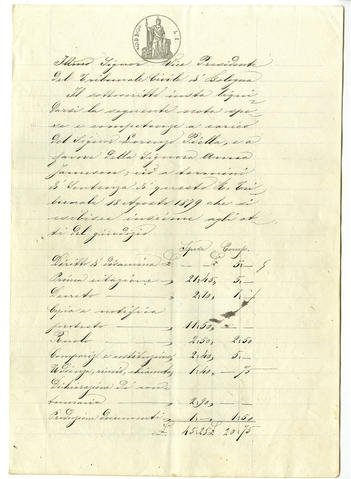 Illmo Signor Vice Presidente
del Tribunale Civile di Bologna
Il sottoscritto insta liqui-
darsi la seguente nota spe-
se e competenze a carico
del Signor Lorenzo Piella, e a
favore della Signora Anna
Jameson, ciò a termini
di Sentenza di questo R. Tri-
bunale 18 Agosto 1879 che si
esibisce insieme agli at-
ti del giudizio
Spese Comp.
Diritto di disamina £ — £ 5,—
Prima citazione — „ 21,45 „ 5,—
Decreto — „ 2,10 „ 1,—
Copia e notifica
protesto — „ 11,50 „ —
Ruolo — „ 2,50 „ 2,50
Comparsa e costituzione „ 2,40 „ 5,—
Udienze, rinvii, chiamate „ 1,40 „ —75
Dichiarazione di con-
tumacia — „ 2,90 „ —
Produzione documenti „ 1,— „ 1,50
£ 45,25 £ 20,75